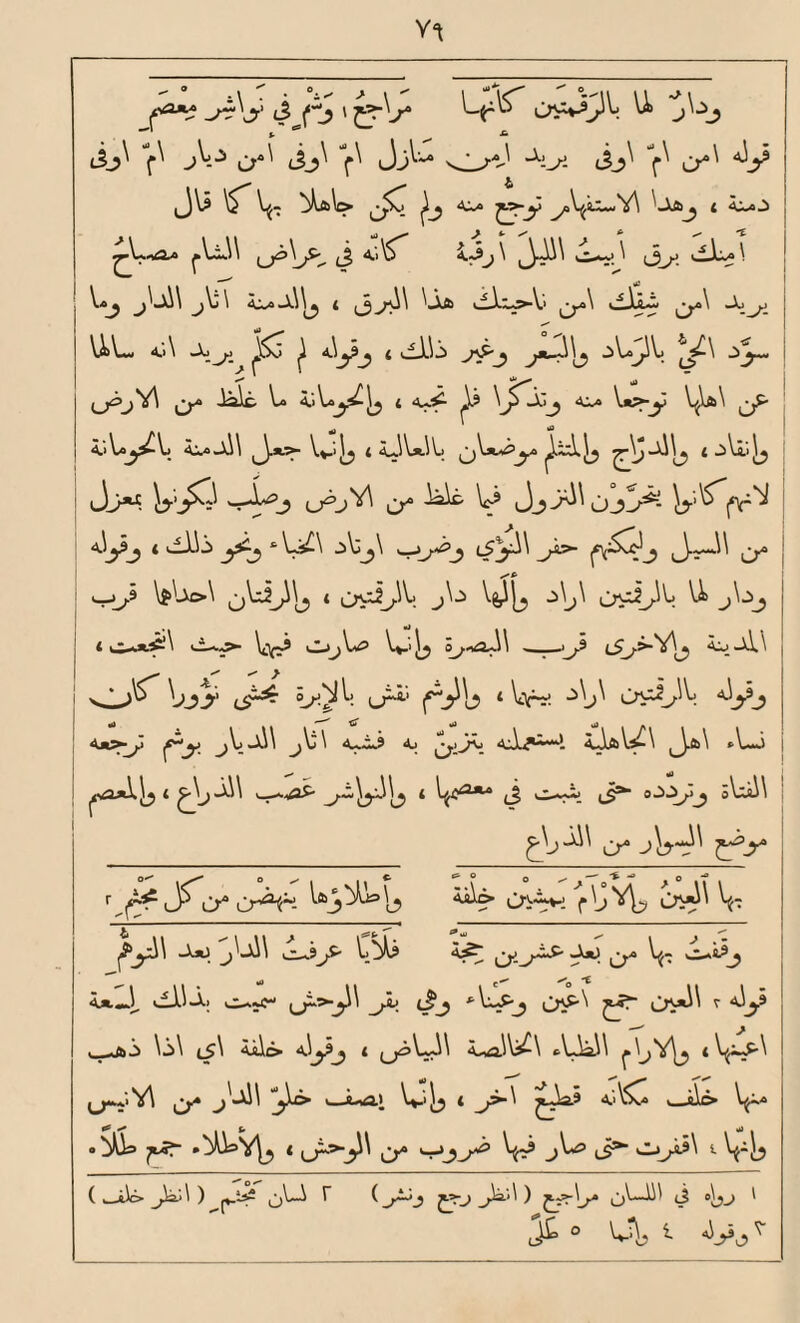 ودار لها بالرقمتين كأنها مراجع ١ وشم في نواشر معصم
قوله أمن أم أوفى يريد منازل أم أوفى أمن ديار أم أوفى
دمنة ، وهذا الاستفهام توجع منه ولم يكن جاهلا بها كما قال
أمنك برق أبيت الليل أرقبه كأنه في عراض الشام مصباح
يريد أمن شقك أمن ناحيتك هذا البرق ، والدمنة آثار الدار وما
سود الحي بالرماد والبعر وغير ذلك ، وقوله لم تكلم يريد أنه سألها
عن أهلها توجعا منه وتذكرا فلم تجبه ، والحومانة ما غلظ من الأرض
وانقاد ، والدراج والمتثلم موضعان بالعالية ، وإنما جعل الدمنة بالحومانة
لأنهم كانوا يتحرون النزول فيما غلظ من الأرض وصلب ليكونوا بمعزل
من السيل وليمكنهم حفر النؤي وضرب أوتاد الخباء وغير ذلك ، وقوله
ودار لها بالرقمتين أراد ولها دار بالرقمتين ، والرقمتان إحداهما قرب
المدينة والأخرى قرب البصرة وإنما صارت فيها حيث انتجعت ،
وقوله بالرقمتين أراد بينهما ، والوشم نقش بالإبرة يحشى نؤورا كانت
نساء أهل الجاهلية يستعملنه يتزين به فشبه آثار الديار بوشم ترجعه
الفتاة وتردده حتى يثبت في معصمها ، والنواشر عصب الذراع ، والمعصم
موضع السوار من الذراع
بها العين والآرام يمشين خلفة وأطلاؤها ينهضن من كل مجثم ٢
وقفت بها من بعد عشرين حجة فلأيا عرفت الدار بعد توهم
قوله ٣ العين جمع أعين وعيناء وهي بقر الوحش سميت بذلك لسعة
أعينها ، والآرام الظباء الخالصة البياض ، وقوله خلفة أي إذا ذهب
منها خلف مكانه قطيع آخر ، وإنما يصف خلو الدار من الأنيس
وأنها ٤ أقفرت حتى صار فيها ضروب من الوحش ، والأطلاء جمع طلا .
١ رواه في اللسان مراجيع ( انظر رجع ونشر ) ٢ لسان مجثم ( انظر خلف )
٣ وقوله ٤ وإنما ٥